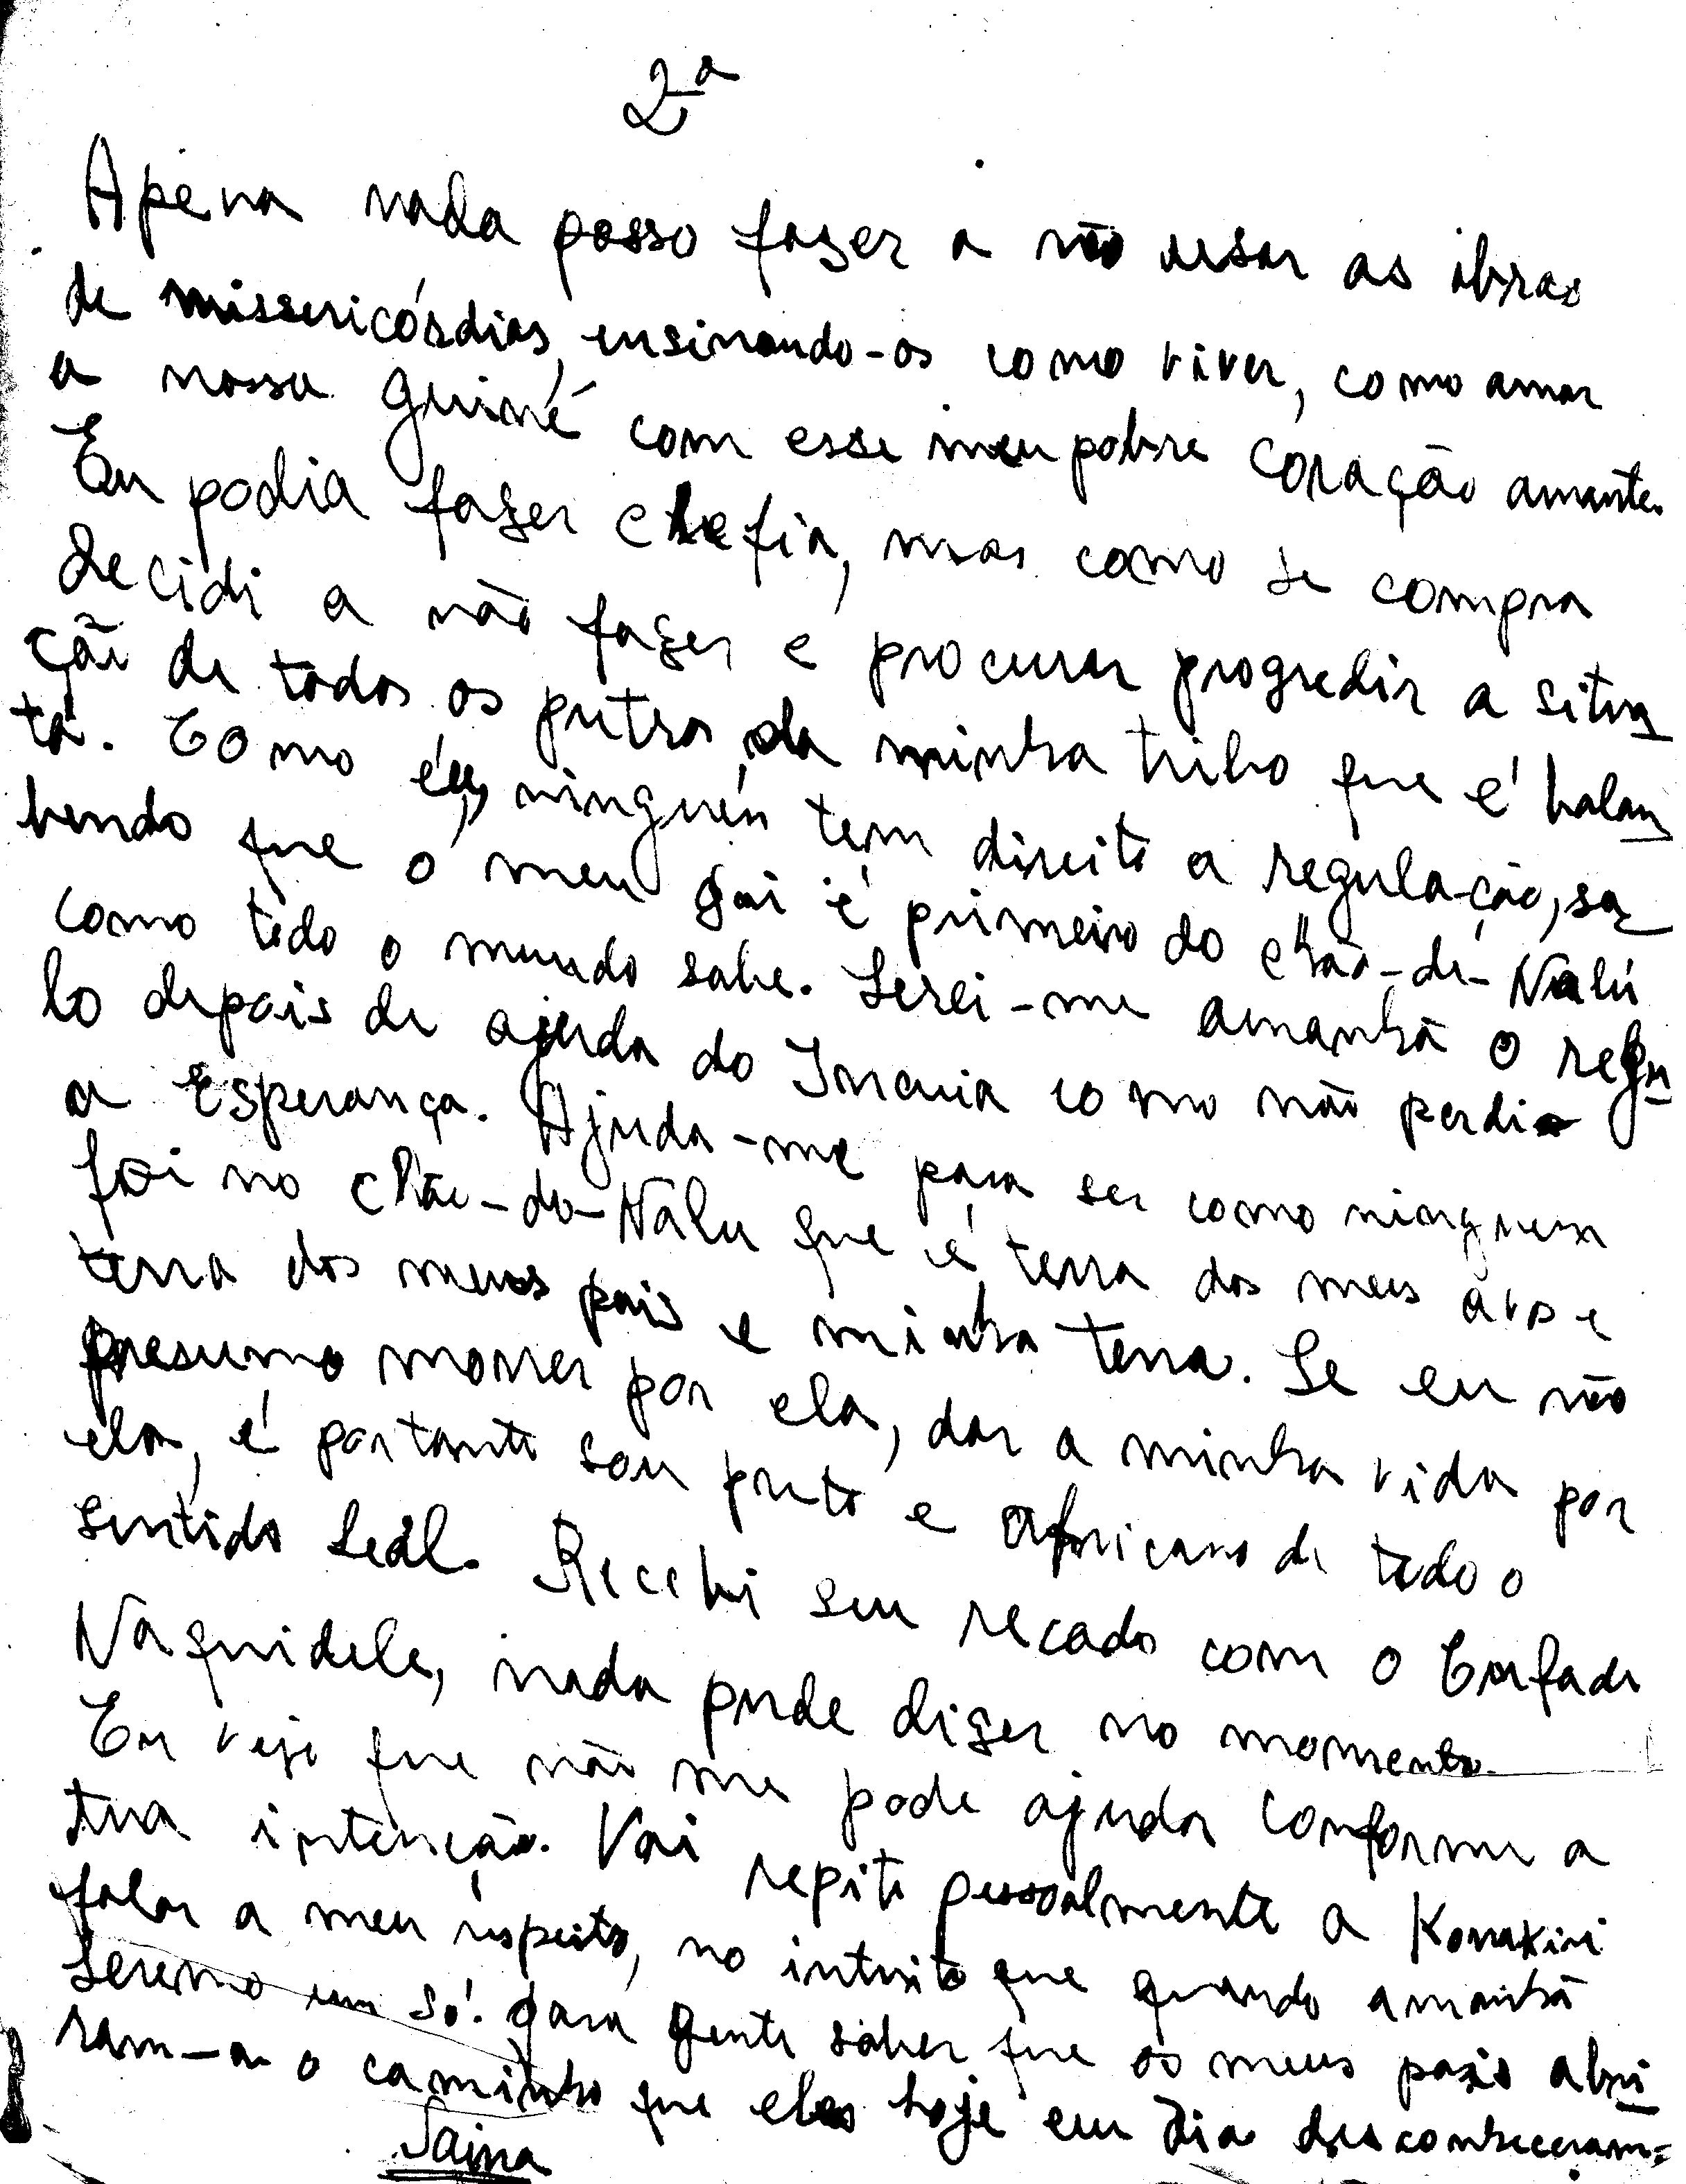 2ª
Apena nada posso fazer a não usar as obras
de missericórdias, ensinando-os como viver, como amar
a nossa guiné com esse meu pobre coração amante.
Eu podia fazer chefia, mas como se compra
decidi a não fazer e procurar progredir a situa
ção de todos os putros da minha tribo que é balan
ta. Como eu, ninguén tem direito a regulação, sa
bendo que o meu pai é primeiro do chão-de-Nalú
como todo o mundo sabe. Serei-me amanhã o regu
lo depois de ajuda do Inamia como não perdi
a Esperança. Ajuda-me para ser como ninguem
foi no chão-do-Nalu que é terra dos meus avos e
terra dos meus pais e minha terra. Se eu não
presumo morrer por ela, dar a minha vida por
ela, é portanto sou preto e africano de todo o
sentido leál. Recebi seu recado com o
Naquidele, nada pude dizer no momento.
Eu vejo que não me pode ajudar conforme a
tua intenção. Vai repito pessoalmente a Konakiri
falar a meu respeito, no intuito que quando amanhã
seremo um só. para gente saber que os meus pais abri
ram-a o caminho que eles hoje em dia desconheceram.
Saina